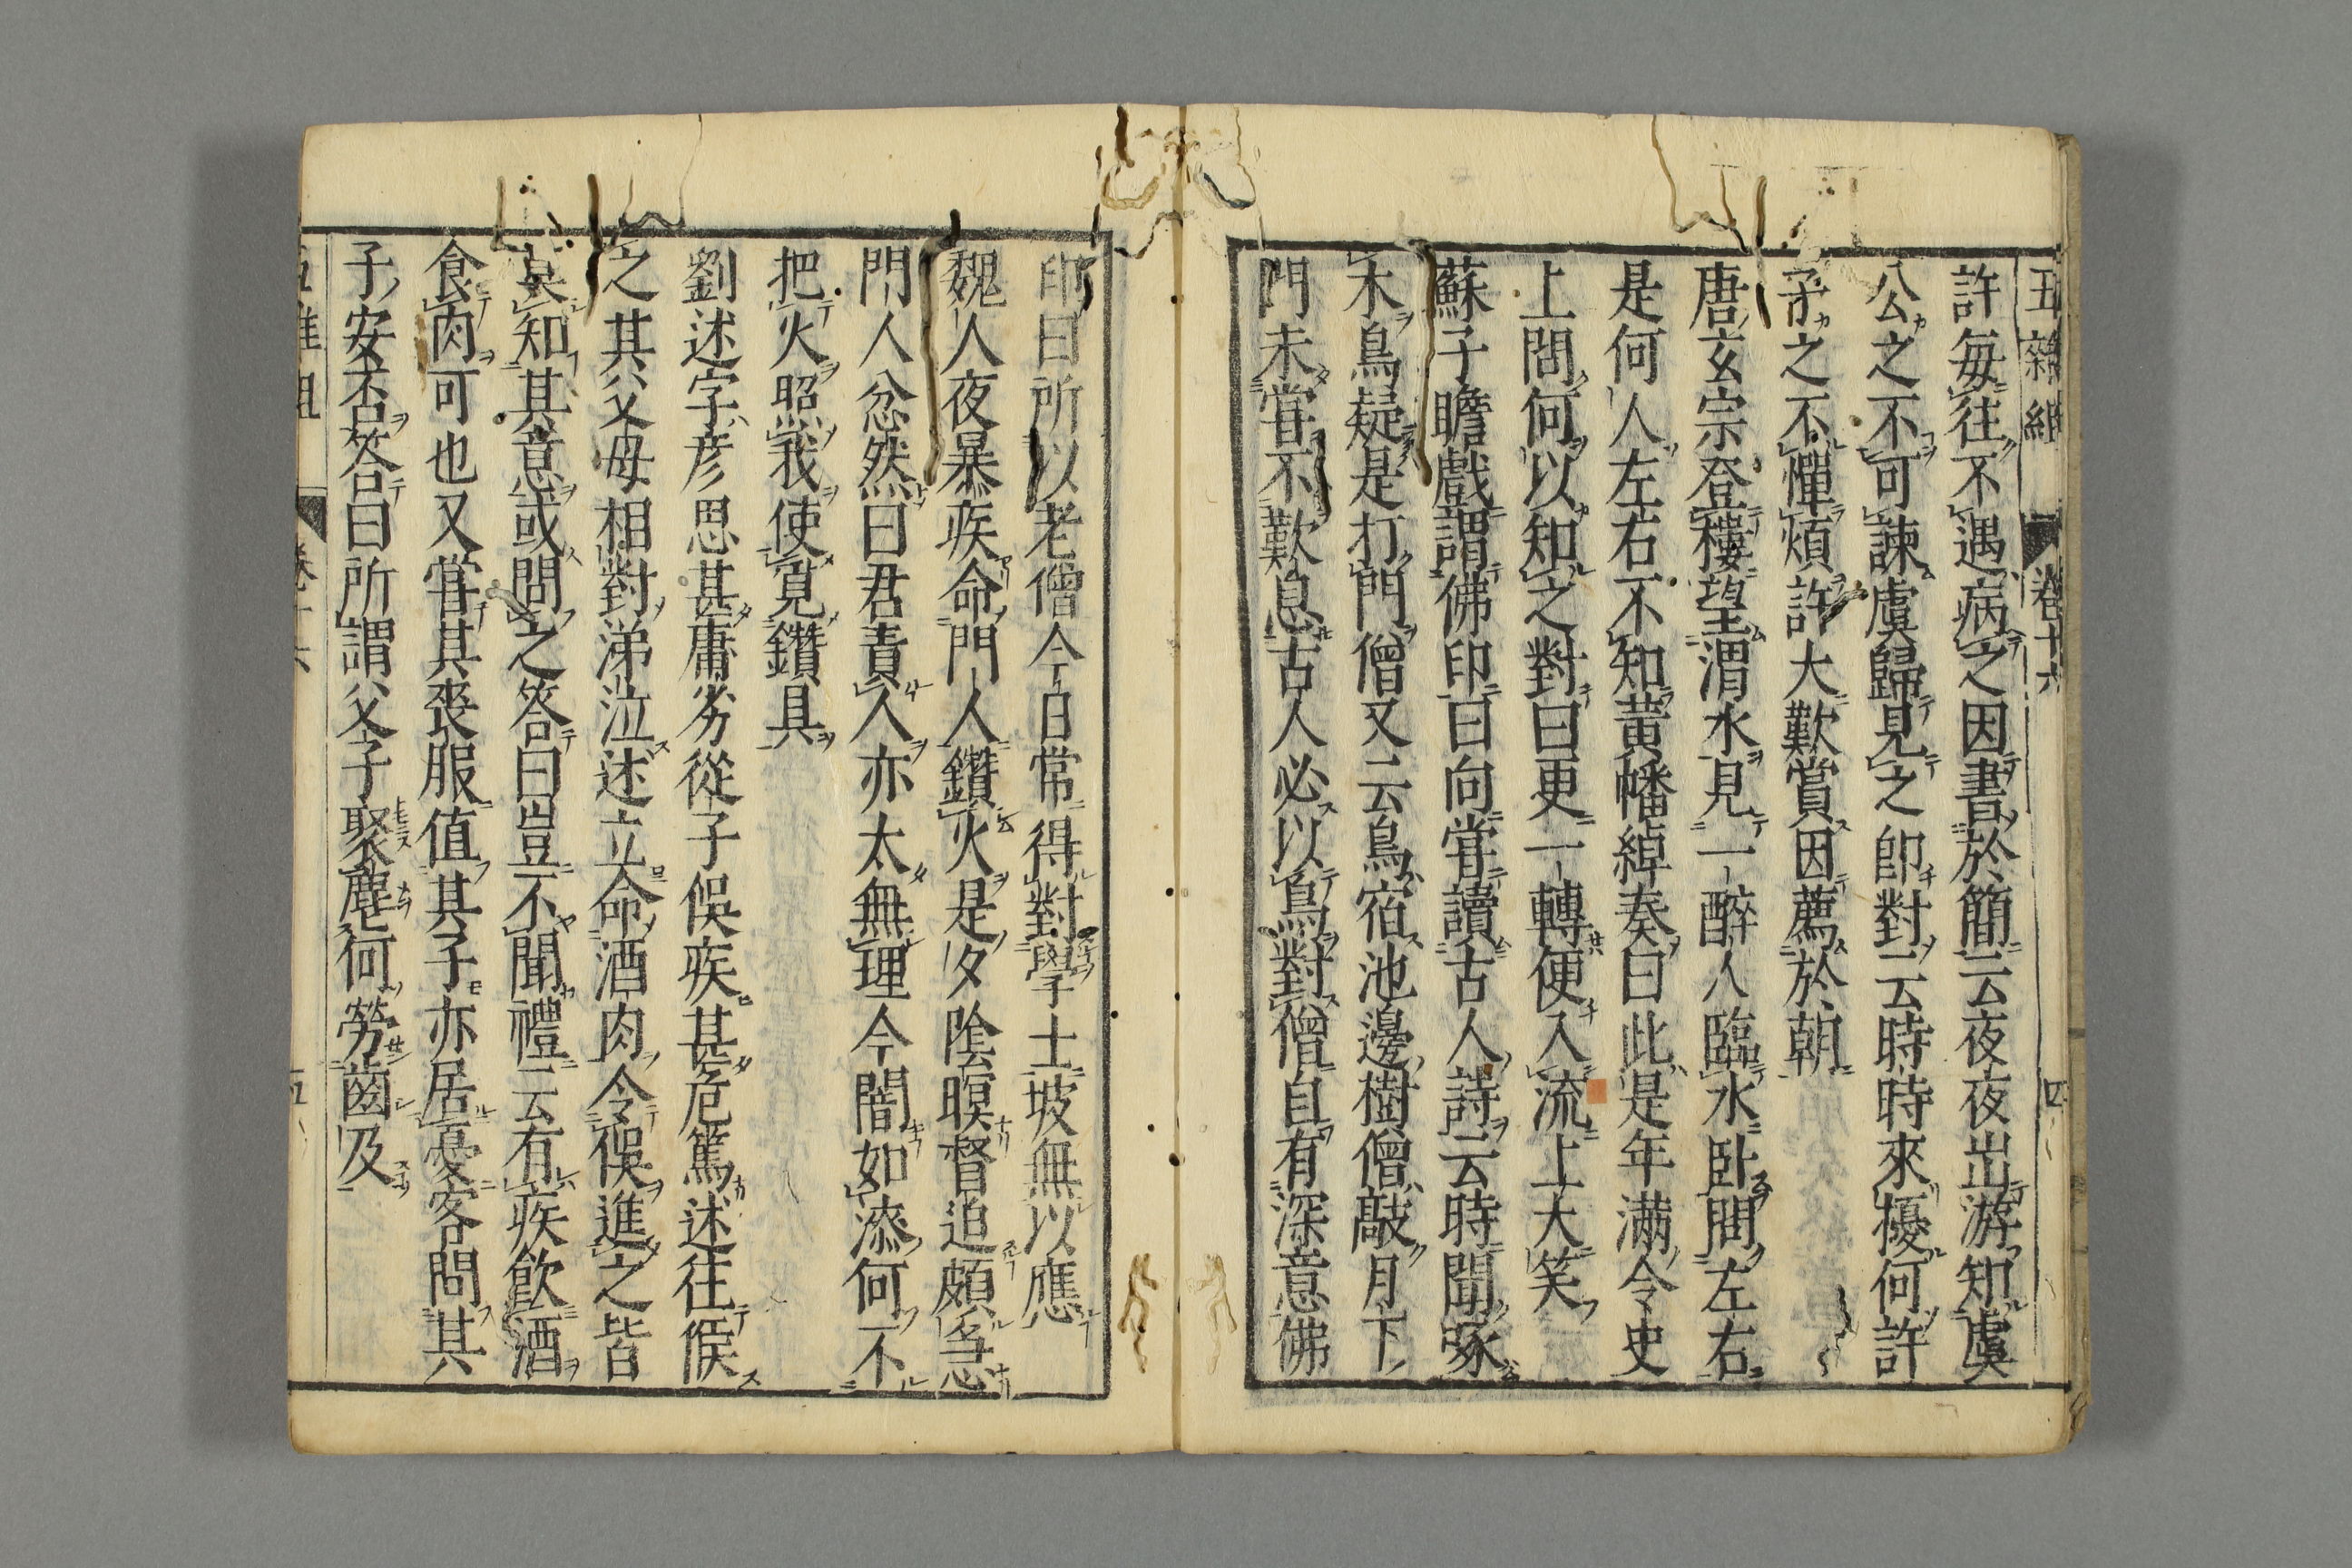 五雜組 卷十六 四
許每往不遇病之因書於簡云夜夜出游知虞
公之不可諫虞歸見之卽對云時時來擾何許
子之不憚煩許大歎賞因薦於朝
唐玄宗登樓望渭水見一醉人臨水臥問左右
是何人左右不知黃幡綽奏曰此是年滿令史
上問何以知之對曰更一轉便入流上大笑
蘇子瞻戲謂佛印曰向嘗讀古人詩云時聞啄
木鳥疑是打門僧又云鳥宿池邊樹僧敲月下
門未嘗不歎息古人必以鳥對僧自有深意佛
印曰所以老僧今日常得對學士坡無以應
魏人夜暴疾命門人鑽火是夕陰暝督迫頗急
門人忿然曰君責人亦太無理今闇如漆何不
把火照我使覓鑽具
劉述字彥思甚庸劣從子俁疾甚危篤述往候
之其父母相對涕泣述立命酒肉令俁進之皆
莫知其意或問之答曰豈不聞禮云有疾飮酒
食肉可也又嘗其喪服値其子亦居憂客問其
子安否答曰所謂父子聚麀何勞齒及
五雜組 卷十六 五